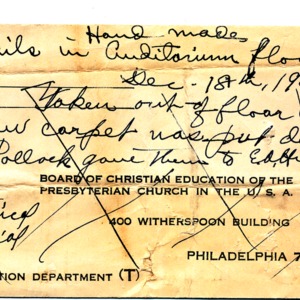 Hand made
ails in Auditorium floo
Dec. 18th, 19
Taken out of floor
w carpet was put d
Pollock gave them to Edith
BOARD OF CHRISTIAN EDUCATION OF THE
PRESBYTERIAN CHURCH IN THE U. S. A.
ial
400 WITHERSPOON BUILDING
PHILADELPHIA 7
TION DEPARTMENT (T)